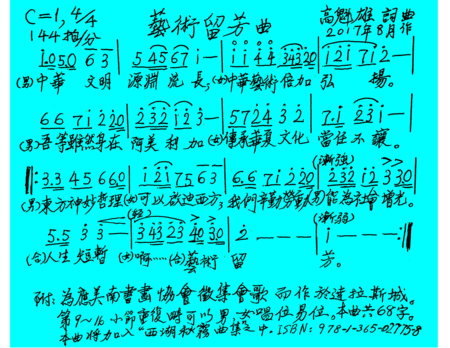 C=1, 4/4
藝術留芳曲
高魁雄 詞曲
144拍/分
2017年8月作
1.0 5.0 6 3 | 5 4 5 6 7 i — | i i 4 4 3 4 3 2 0 | i 2 i 7 i 2 — |
(男)中華 文明 源淵 流 長, (女)中華藝術倍加 弘 揚。
6 6 7 i 2 2 0 | 2 3 2 i 2 3 — | 5 7 2 4 3 2 | 7. i 2 3 i — |
(男)吾等雖然身在 阿美 利 加 (女)傳承華夏文化 當仁不讓。
(漸強)
‖: 3.3 4 5 6 6 0 | i 2 i 7 5 6 3 | 6.6 7 i 2 2 0 | 2 3 2 i 2 3 3 0 |
(男)東方神妙哲理(女)可以啟迪西方, 我們辛勤勞動(男)能為社會增光。
(輕) (漸弱)
5.5 3 3 — | 3 4 3 2 3 4 0 3 0 | 2 — — — | i — — — :‖
(合)人生 短暫 (女)啊……(合)藝術 留 芳。
附: 為應美南書畫協會徵集會歌 而作於達拉斯城。
第9~16小節重復時可以男,女唱位易位。本曲共68字。
本曲將加入“西湖秘露曲集”之中. ISBN: 978-1-365-02775-8